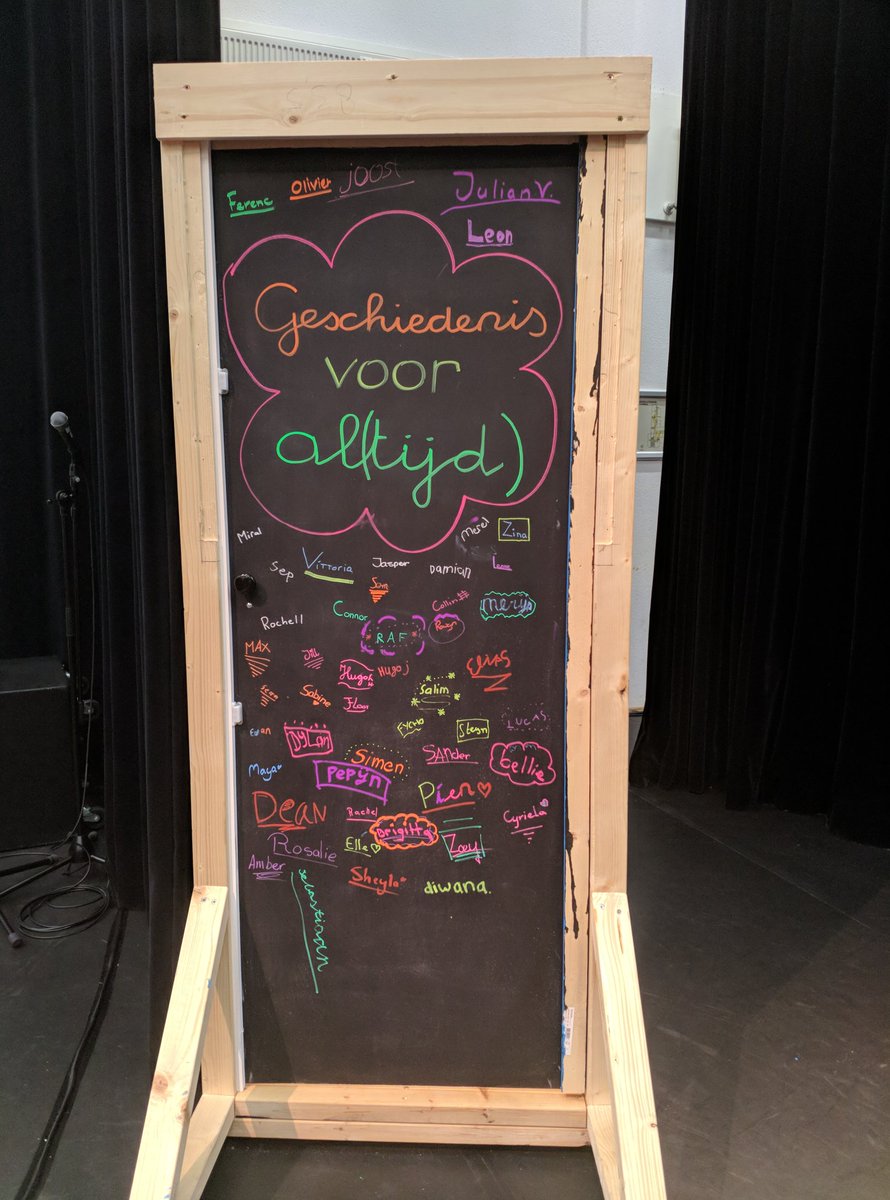 Ferenc Olivier joost Julian V.
Leon
Geschiedenis
voor
al(tijd)
Miral Merel Zina
Sep Vittoria Jasper Damian
Sam
Connor Collin Merijn
Rochell RAF
MAX Jill Hugo Hugo j Elias
Sven Sabine Floor Salim
Steijn LUCAS
DYLAN Simen SANder Eellie
Maya pepijn Pien
Dean Rachel Brigitta Cyriela
Rosalie Elle Zoey
Amber Sheyla diwana.
sebastiaan